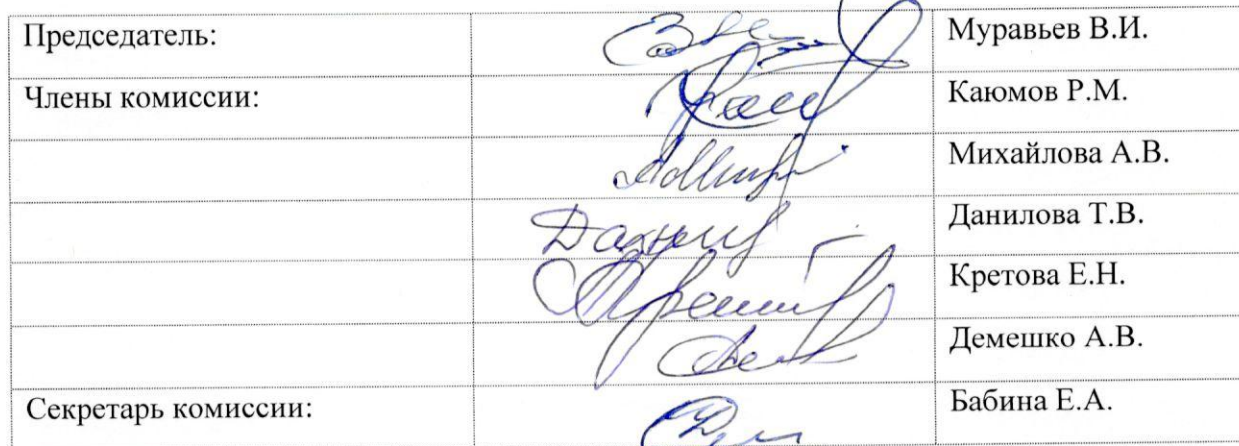 Председатель: Муравьев В.И.
Члены комиссии: Каюмов Р.М.
Михайлова А.В.
Данилова Т.В.
Кретова Е.Н.
Демешко А.В.
Секретарь комиссии: Бабина Е.А.